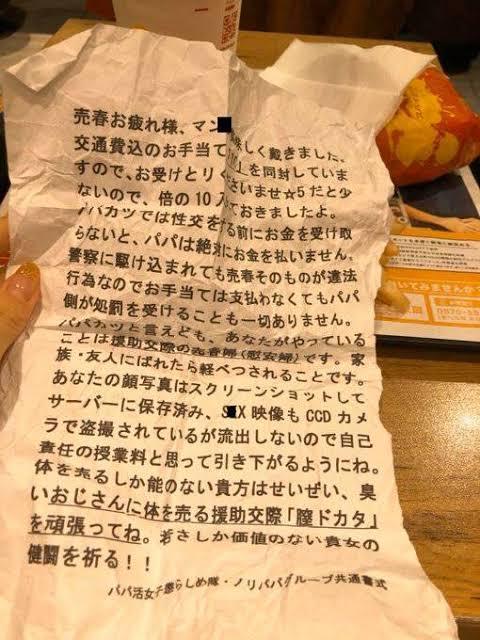 売春お疲れ様、マン■味しく戴きました、
交通費込のお手当て 」を同封していま
すので、お受けとりく さいませ☆5だと少
ないので、倍の10入 ておきましたよ。
パパカツでは性交をする前にお金を受け取
らないと、パパは絶対にお金を払いません。
警察に駆け込まれても売春そのものが違法
行為なのでお手当ては支払わなくてもパパ
側が処罰を受けることも一切ありません。
パパカツと言えども、あなたがやっている
ことは援助交際の売春婦(慰安婦)です。家
族・友人にばれたら軽べつされることです。
あなたの顔写真はスクリーンショットして
サーバーに保存済み、S■X映像もCCDカメ
ラで盗撮されているが流出しないので自己
責任の授業料と思って引き下がるようにね。
体を売るしか能のない貴方はせいぜい、臭
いおじさんに体を売る援助交際「膣ドカタ」
を頑張ってね。若さしか価値のない貴女の
健闘を祈る!!
パパ活女子懲らしめ隊・ノリパパグループ共通書式
いてみませんか?
0570-55